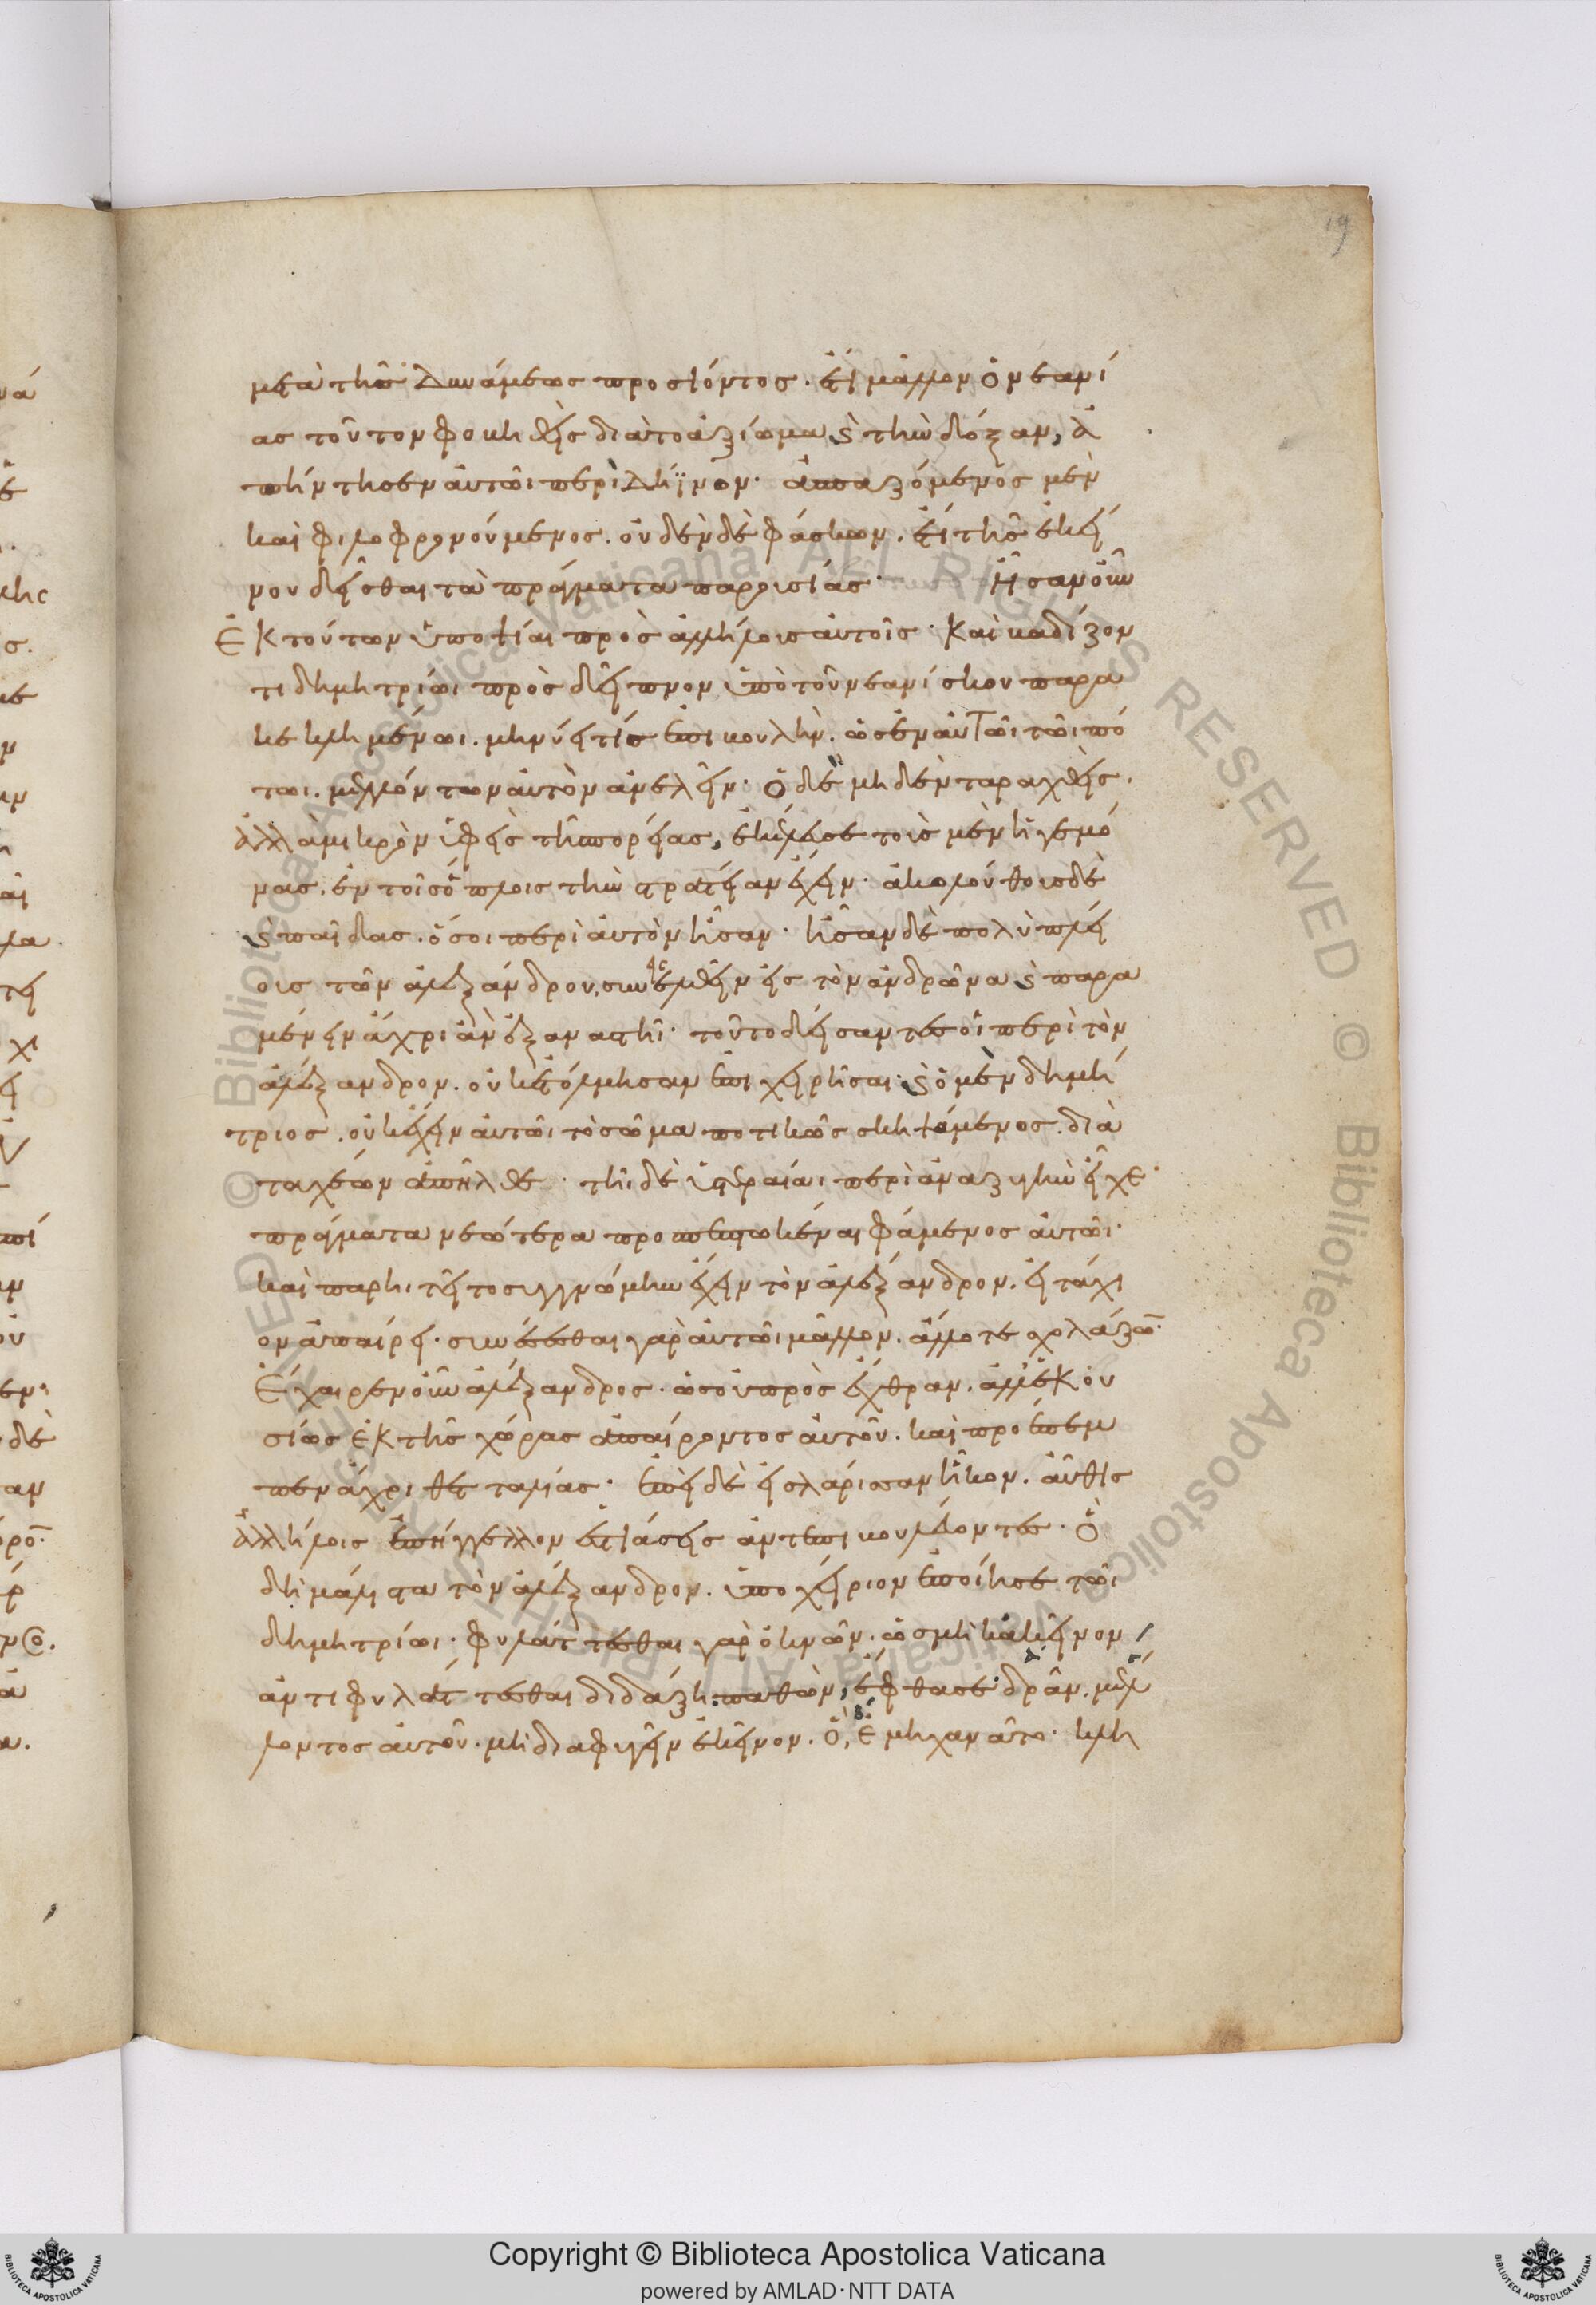 19
μετὰ τῆς δυνάμεως προσιόντος. ἔτι μᾶλλον ὁ νεανί
ας τοῦτον φοβηθεὶς διὰ τὸ ἀξίωμα καὶ τὴν δόξαν, ἀ
πήντησεν αὐτῶι περὶ Δῖϊνον· ἀσπαζόμενος μὲν
καὶ φιλοφρονούμενος. οὐδὲν δὲ φάσκων. ἔτι τῆς ἐκεί
νου δεῖσθαι τὰ πράγματα παρουσίας· Ἦσαν οὖν
ἐκ τούτων ὑποψίαι πρὸς ἀλλήλους αὐτοῖς· καὶ βαδίζον
τι δημητρίωι πρὸς δεῖπνον ὑπὸ τοῦ νεανίσκου παρα
κεκλημένωι. μηνύει τίς ἐπιβουλήν. ὡς ἐν αὐτῶι τῶι πό
τωι. μελλόντων αὐτὸν ἀνελεῖν· ὁ δὲ μηδὲν ταραχθείς.
ἀλλὰ μικρὸν ὑφεὶς τῆς πορείας, ἐκέλευσε τοὺς μὲν ἡγεμό
νας. ἐν τοῖς ὅπλοις τὴν στρατείαν ἔχειν· ἀκολούθους δὲ
καὶ παῖδας. ὅσοι περὶ αὐτὸν ἦσαν· ἦσαν δὲ πολὺ πλεί
ους τῶν ἀλεξάνδρου, συνεισελθεῖν εἰς τὸν ἀνδρῶνα καὶ παρα
μένειν ἄχρι ἂν ἐξαναστῆι· τοῦτο δείσαντες οἱ περὶ τὸν
ἀλέξανδρον. οὐκ ἐτόλμησαν ἐπιχειρῆσαι· καὶ ὁ μὲν δημή
τριος. οὐκ ἔχειν αὐτῶι τὸ σῶμα ποτικῶς σκηψάμενος. διὰ
ταχέων ἀπῆλθε· τῆι δὲ ὑστεραίαι περὶ ἀναζυγὴν εἶχε·
πράγματα νεώτερα προσπεπτωκέναι φάμενος αὐτῶι·
καὶ παρηιτεῖτο συγγνώμην ἔχειν τὸν ἀλέξανδρον. εἰ τάχι
ον ἀπαίρει· συνέσεσθαι γὰρ αὐτῶι μᾶλλον. ἄλλοτε σχολάζων·
ἔχαιρεν οὖν ἀλέξανδρος. ὡς οὐ πρὸς ἔχθραν. ἀλλ' ἑκου
σίως ἐκ τῆς χώρας ἀπαίροντος αὐτοῦ. καὶ προέπεμ
πεν ἄχρι θετταλίας· ἐπεὶ δὲ εἰς λάρισσαν ἧκον. αὖθις
ἀλλήλοις ἐπήγγελλον ἑστιάσεις ἀντεπιβουλεύοντες· ὃ
δὴ μάλιστα τὸν ἀλέξανδρον. ὑποχείριον ἐποίησε τῶι
δημητρίωι· φυλάττεσθαι γὰρ ὀκνῶν. ὡς μὴ κἀκεῖνον
ἀντιφυλάττεσθαι διδάξηι. παθὼν, ἔφθασε· δρᾶν. μέλ
λοντος αὐτοῦ. μὴ διαφυγεῖν ἐκεῖνον. ὃ, ἐμηχανᾶτο· κλη